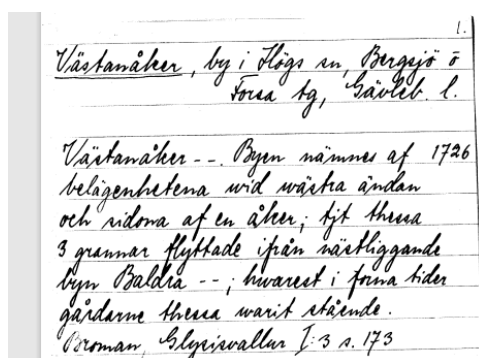 1.
Västanåker, by i Högs sn, Bergsjö o
Forsa tg, Gävleb. l.
Västanåker --. Byen nämnes af 1726
belägenhetena wid wästra ändan
och sidona af en åker; tjt thessa
3 grannar flyttade ifrån nästliggande
byn Baldra --; hwarest i forna tider
gårdarne thessa warit stående.
Broman, Glysisvallur I:3 s. 173